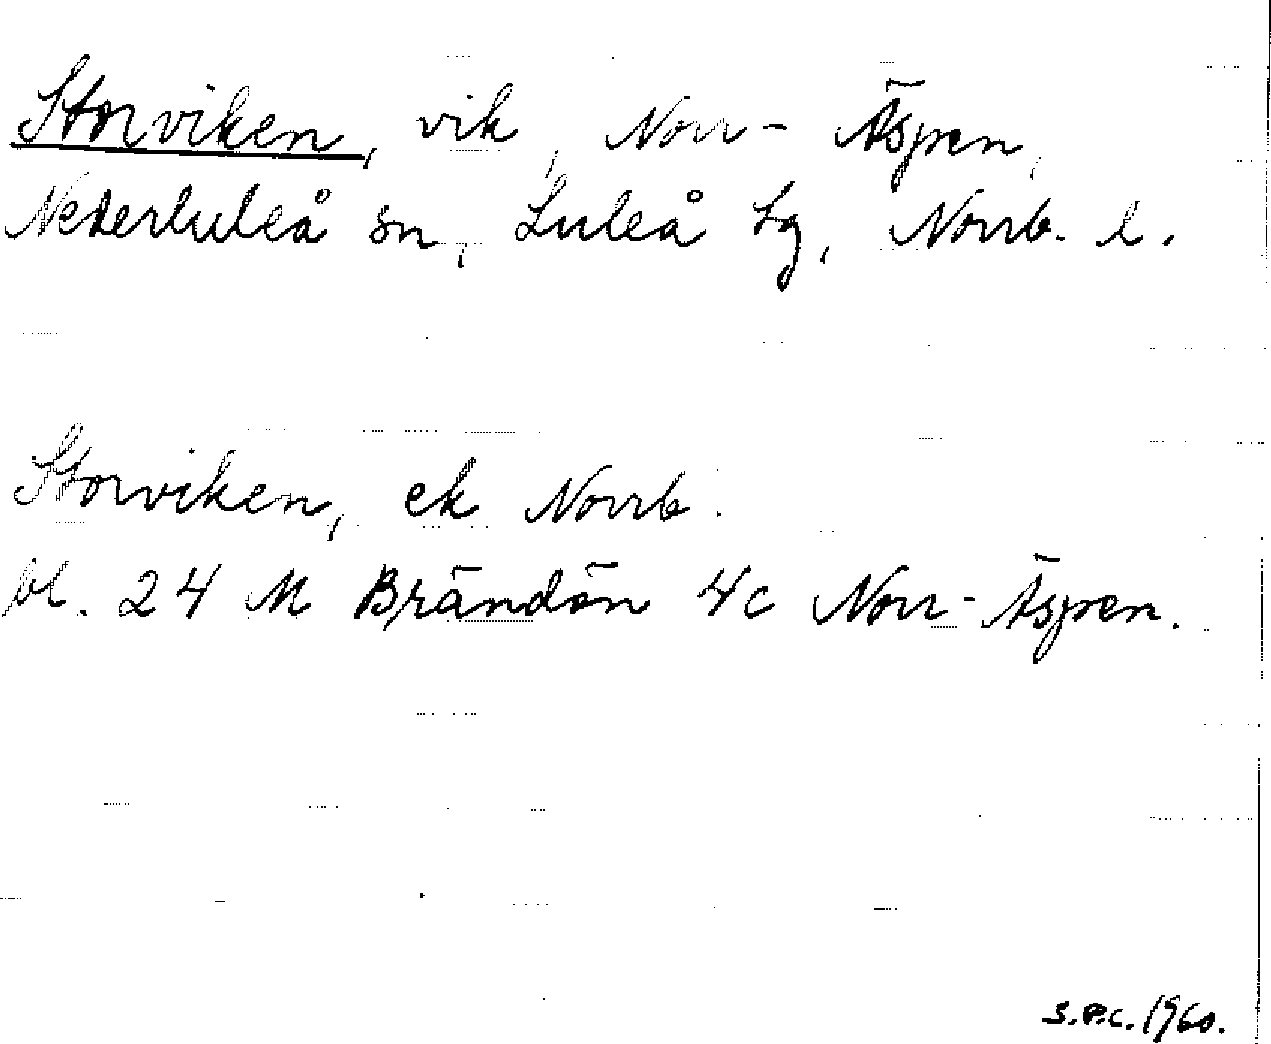 Storviken, vik, Norr-Äspen,
Nederluleå sn, Luleå tg, Norrb. l.
Storviken, ek Norrb.
bl. 24 M Brändön 4c Norr-Äspen.
S.P.C. 1960.